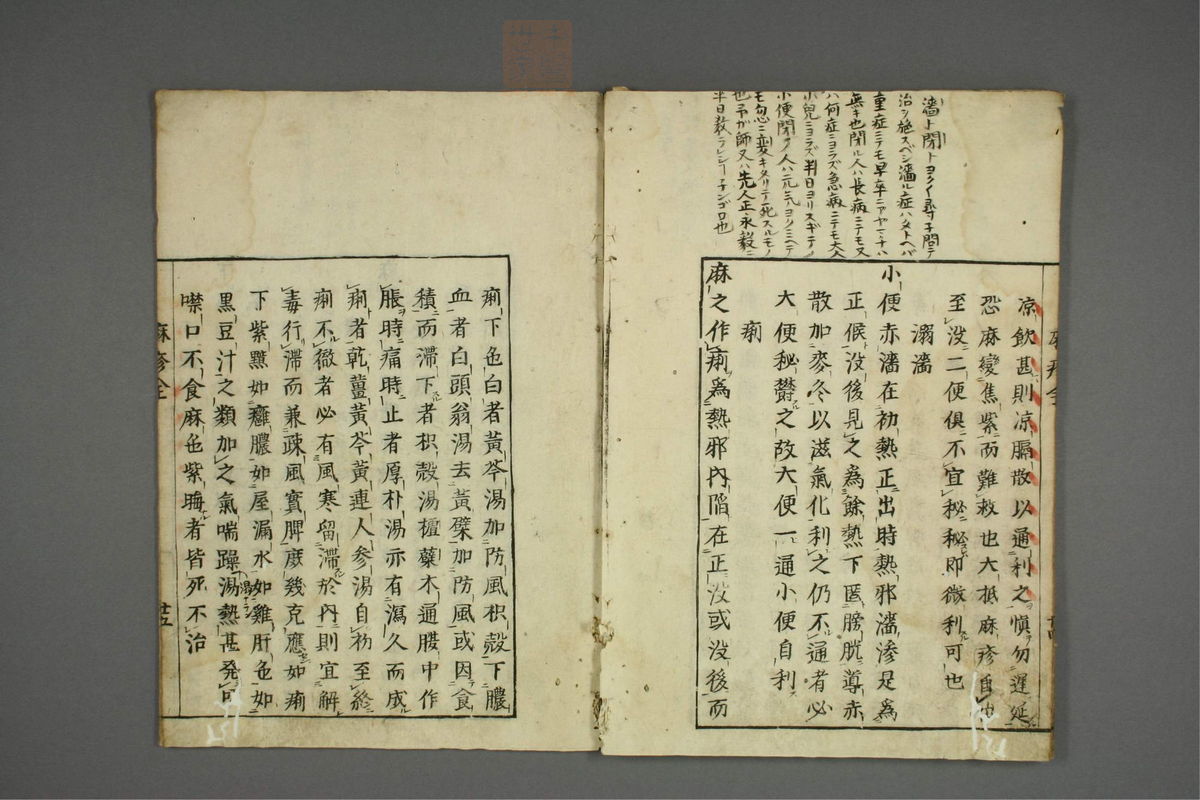 濇ト閉トヨク〳〵尋子問テ
治シ施スベシ濇ル症ハタトヘバ
重症ニテモ早卒ニアヤマチハ
無キ也閉ル人ハ長病ニテモ又
ハ何症ニヨラズ急病ニテモ大人
小兒ニヨラズ半日ヨリスギテノ
小便閉タ人ハ元氣ヨクミヘテ
モ勿忽ニ変キタリテ死スルモノ
也予ガ師又ハ先人正永毅ニ
半日教ラレシ
涼飲甚則涼膈散以通利之慎勿遲延
恐麻變焦紫而難救也大抵麻疹自
至没二便倶不宜秘秘即微利可也
溺濇
小便赤濇在初熱正出時熱邪濇滲是爲
正候没後見之爲餘熱下匿膀胱導赤
散加麥冬以滋氣化利之仍不通者必
大便秘欝之故大便一通小便自利
痢
麻之作痢爲熱邪内陷在正没或没後而
痢下色白者黃芩湯加防風枳殼下膿
血者白頭翁湯去黃蘗加防風或因食
積而滯下者枳殼湯檀蘗木通腹中作
脹時痛時止者厚朴湯亦有瀉久而成
痢者乾薑黃芩黃連人參湯自初至終
痢不徹者必有風寒留滯於内則宜解
毒行滯而兼疎風實脾庶幾克應如痢
下紫黑如癰膿如屋漏水如雞肝色如
黑豆汁之類加之氣喘躁湯熱甚発
噤口不食麻色紫晦者皆死不治
麻疹全